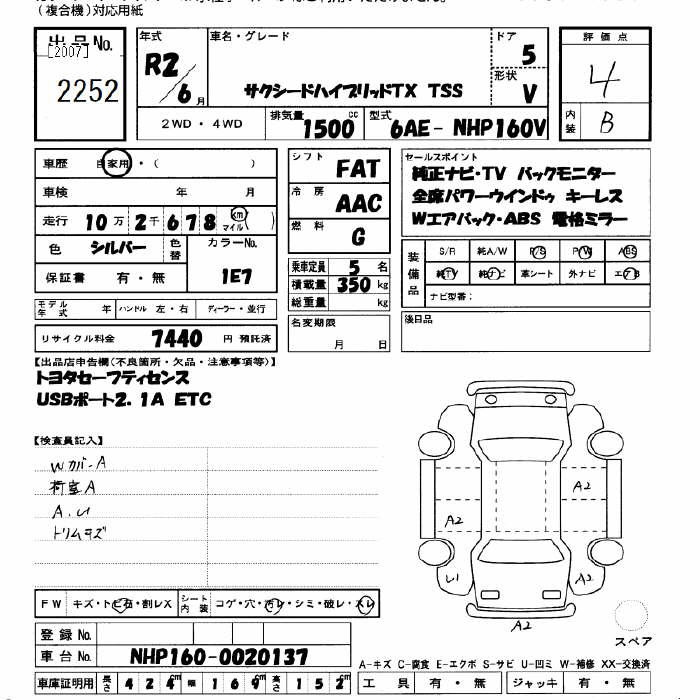 (複合機)対応用紙
出品No. [2007] 2252
年式 R2/6月
車名・グレード サクシードハイブリッドTX TSS
ドア 5
形状 V
評価点 4
内装 B
2WD・4WD
排気量 1500 cc
型式 6AE-NHP160V
車歴 自家用・( )
車検 年 月
走行 10万2千678 km マイル( )
色 シルバー 色替 カラーNo. 1E7
保証書 有・無
モデル年式 年 ハンドル 左・右 ディーラー・並行
リサイクル料金 7440 円 預託済
シフト FAT
冷房 AAC
燃料 G
乗車定員 5 名
積載量 350 kg
総重量 kg
名変期限 月 日
セールスポイント
純正ナビ・TV バックモニター
全席パワーウインドゥ キーレス
Wエアバック・ABS 電格ミラー
装備品 S/R 純A/W P/S P/W ABS
純TV 純ナビ 革シート 外ナビ エアB
ナビ型番:
後日品
【出品店申告欄(不良箇所・欠品・注意事項等)】
トヨタセーフティセンス
USBポート2.1A ETC
【検査員記入】
Wカバー A
荷室A
A.レ
トリムキズ
A2
A2
レ1
A2
A2
スペア
FW キズ・トビ石・割レX シート内装 コゲ・穴・汚レ・シミ・破レ・スレ
登録No.
車台No. NHP160-0020137
車庫証明用 長さ 4 2 4m 幅 1 6 9m 高さ 1 5 2m
A-キズ C-腐食 E-エクボ S-サビ U-凹ミ W-補修 XX-交換済
工具 有・無 ジャッキ 有・無